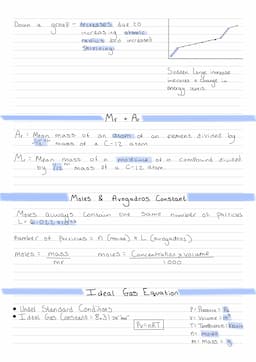 Down a group - decreases due to
increasing atomic
radius and increased
shielding
Sudden large increase
indicates a change in
energy level.
Mr + Ar
Ar = Mean mass of an atom of an element divided by
1/12 mass of a C-12 atom.
Mr = Mean mass of a molecule of a compound divided
by 1/12 mass of a C-12 atom.
Moles & Avogadros Constant
Moles always contain the same number of particles
L = 6.022x10²³
Number of Particles = n (moles) x L (Avogadros)
moles = mass / mr moles = Concentration x volume / 1000
Ideal Gas Equation
• Under Standard Conditions
• Ideal Gas Constant = 8.31
PV=nRT
P = Pressure = Pa
V = Volume = m³
T = Temperature = Kelvin
n = moles
M = Mass = g